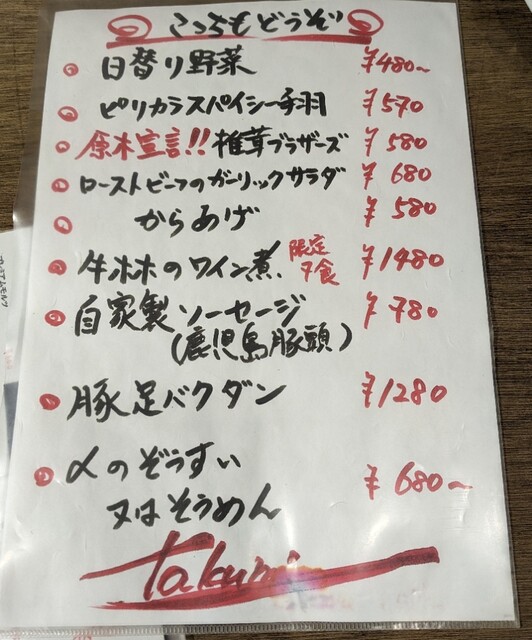 こっちもどうぞ!
日替り野菜 ¥480~
ピリカラスパイシー手羽 ¥570
原木宣言!! 椎茸ブラザーズ ¥580
ローストビーフのガーリックサラダ ¥680
からあげ ¥580
牛ホホのワイン煮 限定7食 ¥1480
自家製ソーセージ ¥780
(鹿児島豚頭)
豚足バクダン ¥1280
〆のぞうすい ¥680~
又はそうめん
Takumi